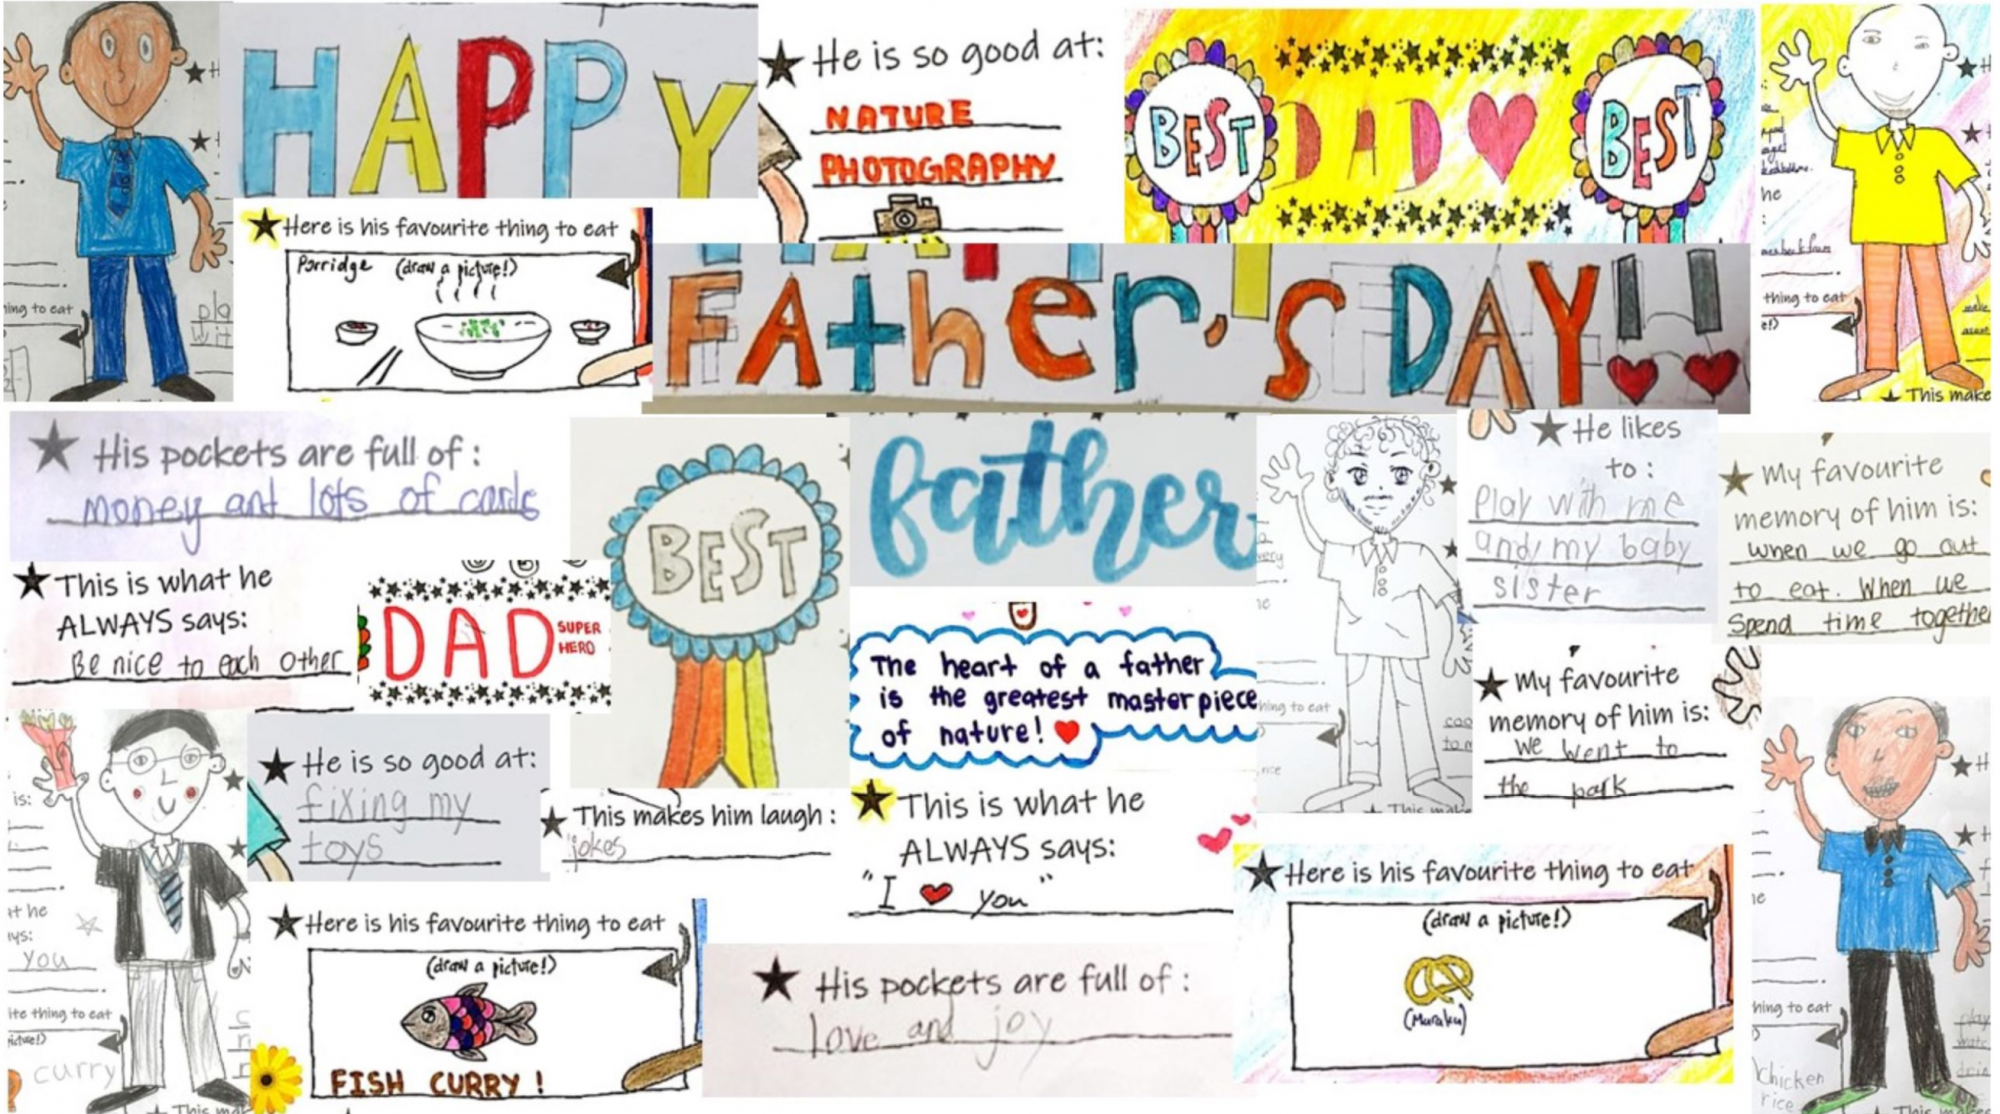 HAPPY
He is so good at:
NATURE
PHOTOGRAPHY
BEST DAD BEST
Here is his favourite thing to eat
Porridge (draw a picture!)
FATher's DAY!!
thing to eat
This make
His pockets are full of:
money and lots of cards
This is what he
ALWAYS says:
Be nice to each other
DAD SUPER
HERO
BEST
father
The heart of a father
is the greatest masterpiece
of nature!
He likes
to:
Play with me
and my baby
sister
My favourite
memory of him is:
when we go out
to eat. When we
Spend time together
My favourite
memory of him is:
we went to
the park
He is so good at:
fixing my
toys
This makes him laugh:
jokes
This is what he
ALWAYS says:
"I ❤ you"
Here is his favourite thing to eat
(draw a picture!)
FISH CURRY!
His pockets are full of:
love and joy
Here is his favourite thing to eat
(draw a picture!)
(Muruku)
is:
you
thing to eat
curry
thing to eat
chicken
rice